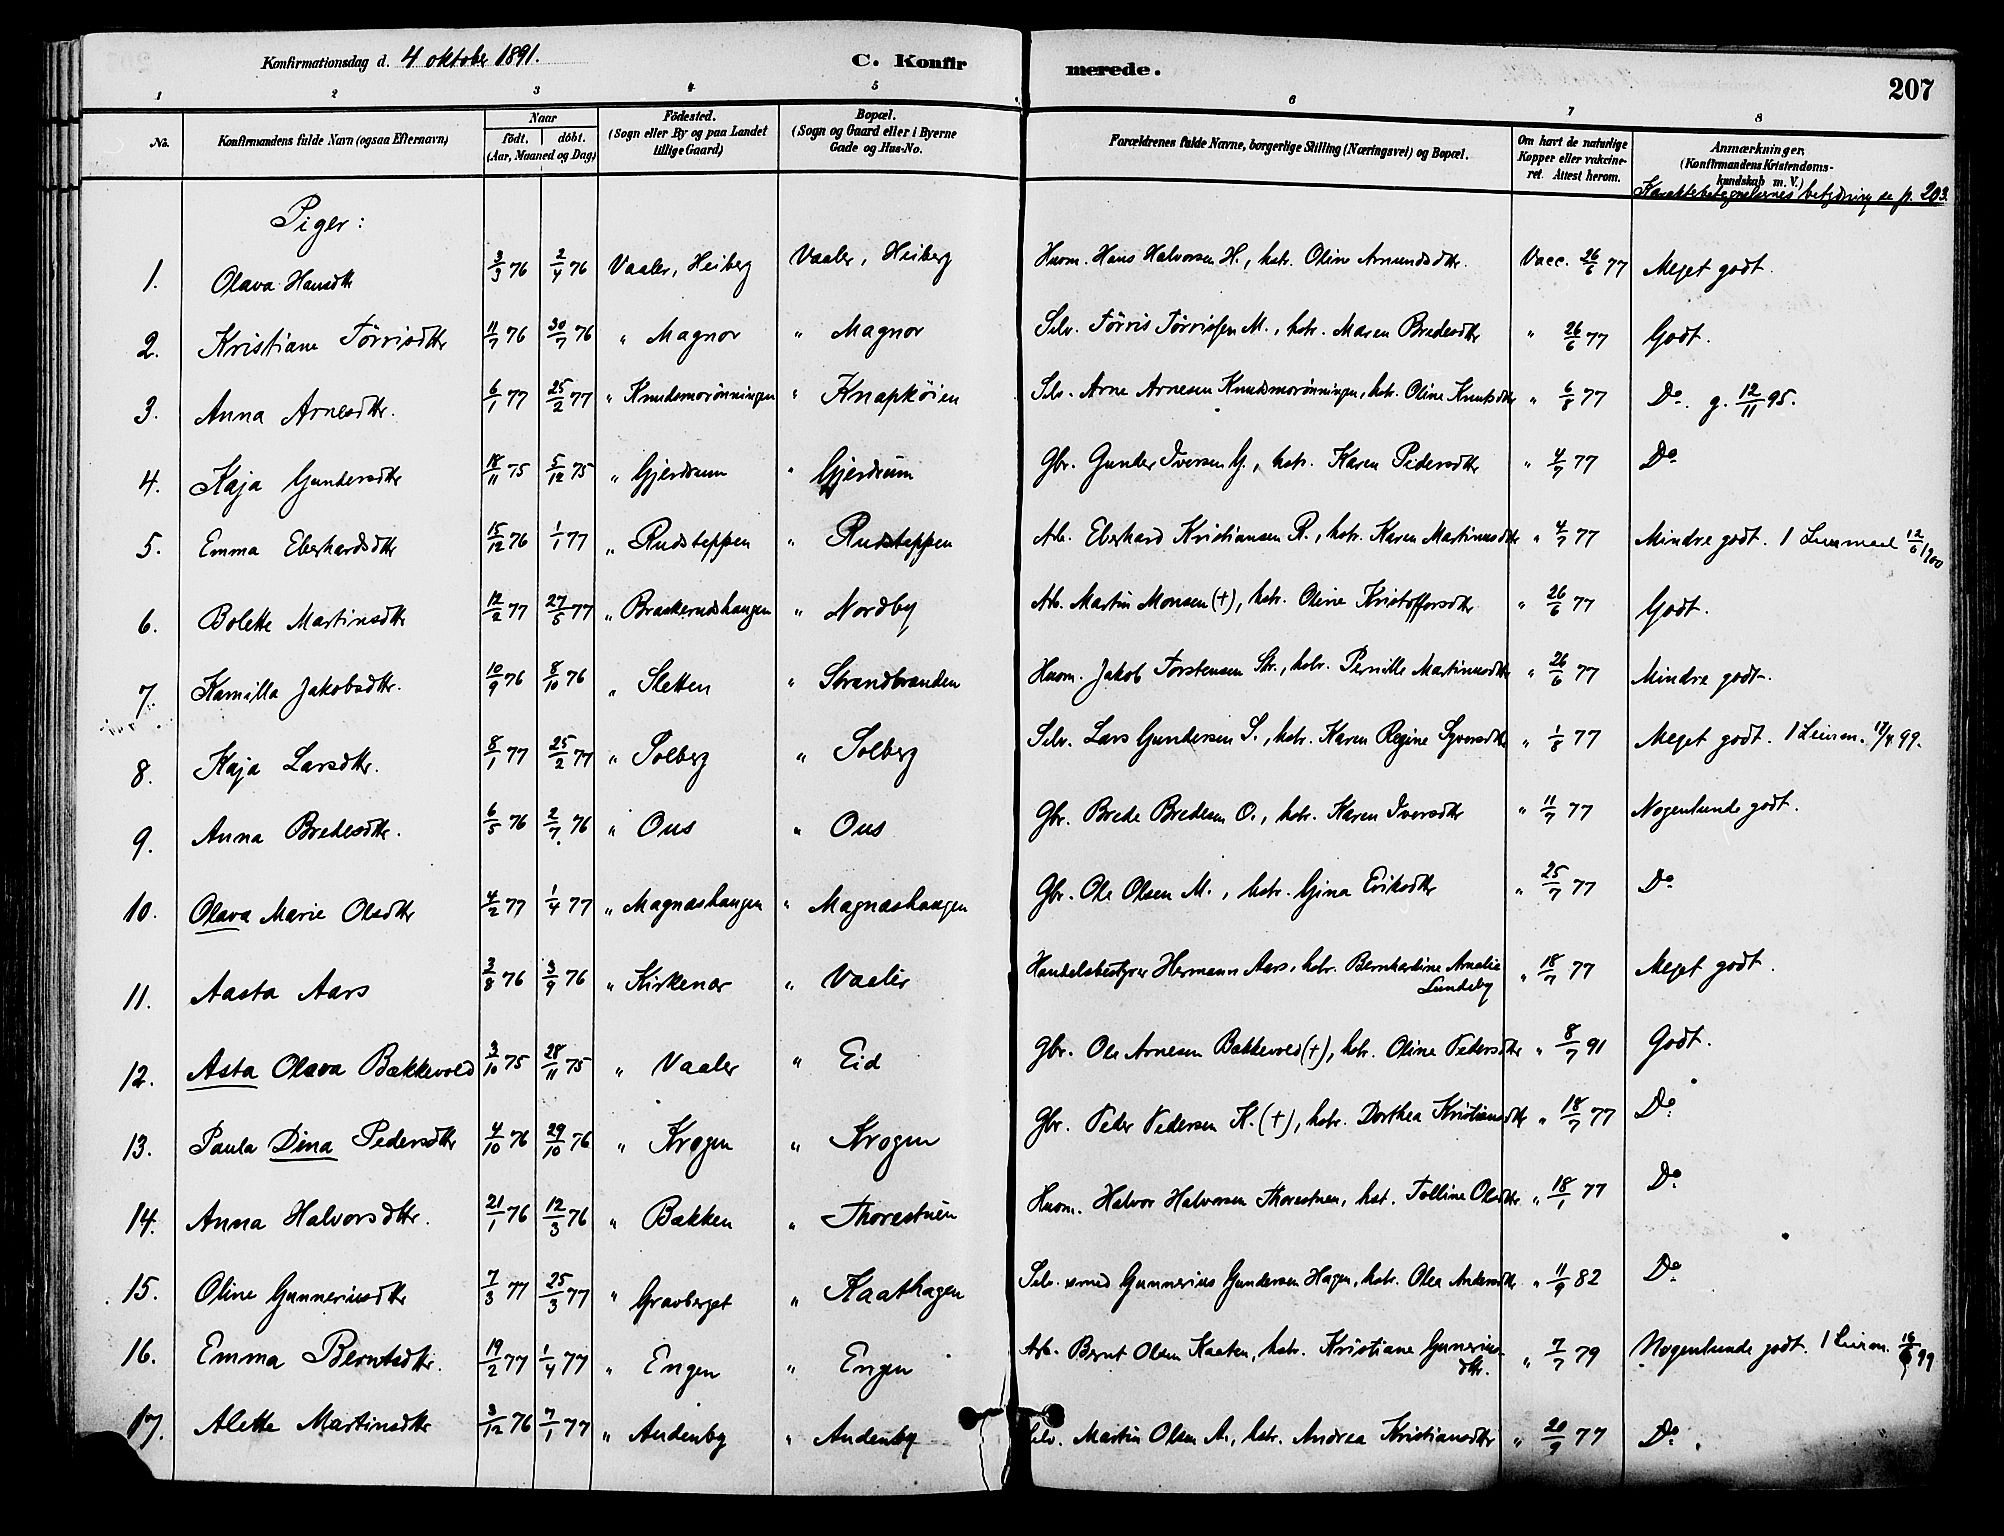 Konfirmationsdag d. 4 oktober 1891.
C. Konfir
merede.
207
1 2 3 4 5 6 7 8
No.
Konfirmandens fulde Navn (ogsaa Efternavn)
Naar
født, døbt.
(Aar, Maaned og Dag)
Fødested.
(Sogn eller By og paa Landet
tillige Gaard)
Bopæl.
(Sogn og Gaard eller i Byerne
Gade og Hus-No.
Forældrenes fulde Navne, borgerlige Stilling (Næringsvei) og Bopæl.
Om havt de naturlige
Kopper eller vakcine-
ret. Attest herom.
Anmærkninger.
(Konfirmandens Kristendoms-
kundskab m. V.)
Karakterbetegnelsernes betydning se p. 203.
Piger:
1. Olava Hansdtr 3/3 76 2/4 76 Vaaler, Heiberg Vaaler, Heiberg Husm. Hans Halvorsen H., hstr. Oline Amundsdtr. Vacc. 26/6 77 Meget godt.
2. Kristiane Tørrisdtr 11/7 76 30/7 76 " Magnor " Magnor Selv. Tørris Tørrissen M., hstr. Maren Bredesdtr " 26/6 77 Godt.
3. Anna Arnesdtr. 6/1 77 25/2 77 " Knudsmorønningen " Knapkøien Selv. Arne Arnesen Knudsmorønningen, hstr. Oline Knutsdtr " 6/8 77 Do. g. 12/11 95.
4. Kaja Gundersdtr 18/11 75 5/12 75 " Gjerdrum " Gjerdrum Gbr. Gunder Iversen G., hstr. Karen Pedersdtr " 4/7 77 Do
5. Emma Eberhardsdtr 15/12 76 1/1 77 " Rudsteppen " Rudsteppen Arb. Eberhard Kristiansen R., hstr. Karen Martinusdtr " 4/7 77 Mindre godt. 1 12/6 1900
6. Bolette Martinsdtr 12/2 77 27/5 77 " Braskerudshaugen " Nordby Arb. Martin Monsen (+), hstr. Oline Kristoffersdtr " 26/6 77 Godt.
7. Kamilla Jakobsdtr. 10/9 76 8/10 76 " Sletten " Strandbraaden Husm. Jakob Torstensen Str., hstr. Pernille Martinusdtr " 26/6 77 Mindre godt.
8. Kaja Larsdtr. 8/1 77 25/2 77 " Solberg " Solberg Selv. Lars Gundersen S., hstr. Karen Regine Syversdtr " 1/8 77 Meget godt. 1 99.
9. Anna Bredesdtr. 6/5 76 2/7 76 " Ous " Ous Gbr. Brede Bredesen O., hstr. Karen Iversdtr " 11/7 77 Nogenlunde godt.
10. Olava Marie Olsdtr 4/2 77 1/4 77 " Magnashaugen " Magnashaugen Gbr. Ole Olsen M., hstr. Gina Eriksdtr " 25/7 77 Do
11. Aasta Aars 3/8 76 3/9 76 " Kirkenær " Vaaler Handelsbestyrer Hermann Aars, hstr. Bernhardine Amalie
Lundeby " 18/7 77 Meget godt.
12. Asta Olava Bakkevold 3/10 75 28/11 75 " Vaaler " Eid Gbr. Ole Arnesen Bakkevold (+), hstr. Oline Pedersdtr " 8/7 91 Godt.
13. Paula Dina Pedersdtr 4/10 76 29/10 76 " Krogen " Krogen Gbr. Peder Pedersen K. (+), hstr. Dorthea Kristiansdtr " 18/7 77 Do
14. Anna Halvorsdtr. 21/1 76 12/3 76 " Bakken " Thorestuen Husm. Halvor Halvorsen Thorestuen, hst. Tolline Olsdtr " 18/1 77 Do
15. Oline Gunneriusdtr 7/3 77 25/3 77 " Gravberget " Kaathagen Selv. smed Gunnerius Gundersen Hagen, hstr. Olea Andersdtr " 11/9 82 Do
16. Emma Berntsdtr. 19/2 77 1/4 77 " Engen " Engen Arb. Bernt Olsen Kaaten, hstr. Kristiane Gunnerius-
dtr. " 7/7 79 Nogenlunde godt. 1 99
17. Alette Martinsdtr 3/12 76 7/1 77 " Audenby " Audenby Selv. Martin Olsen A., hstr. Andrea Kristiansdtr " 20/9 77 Do.